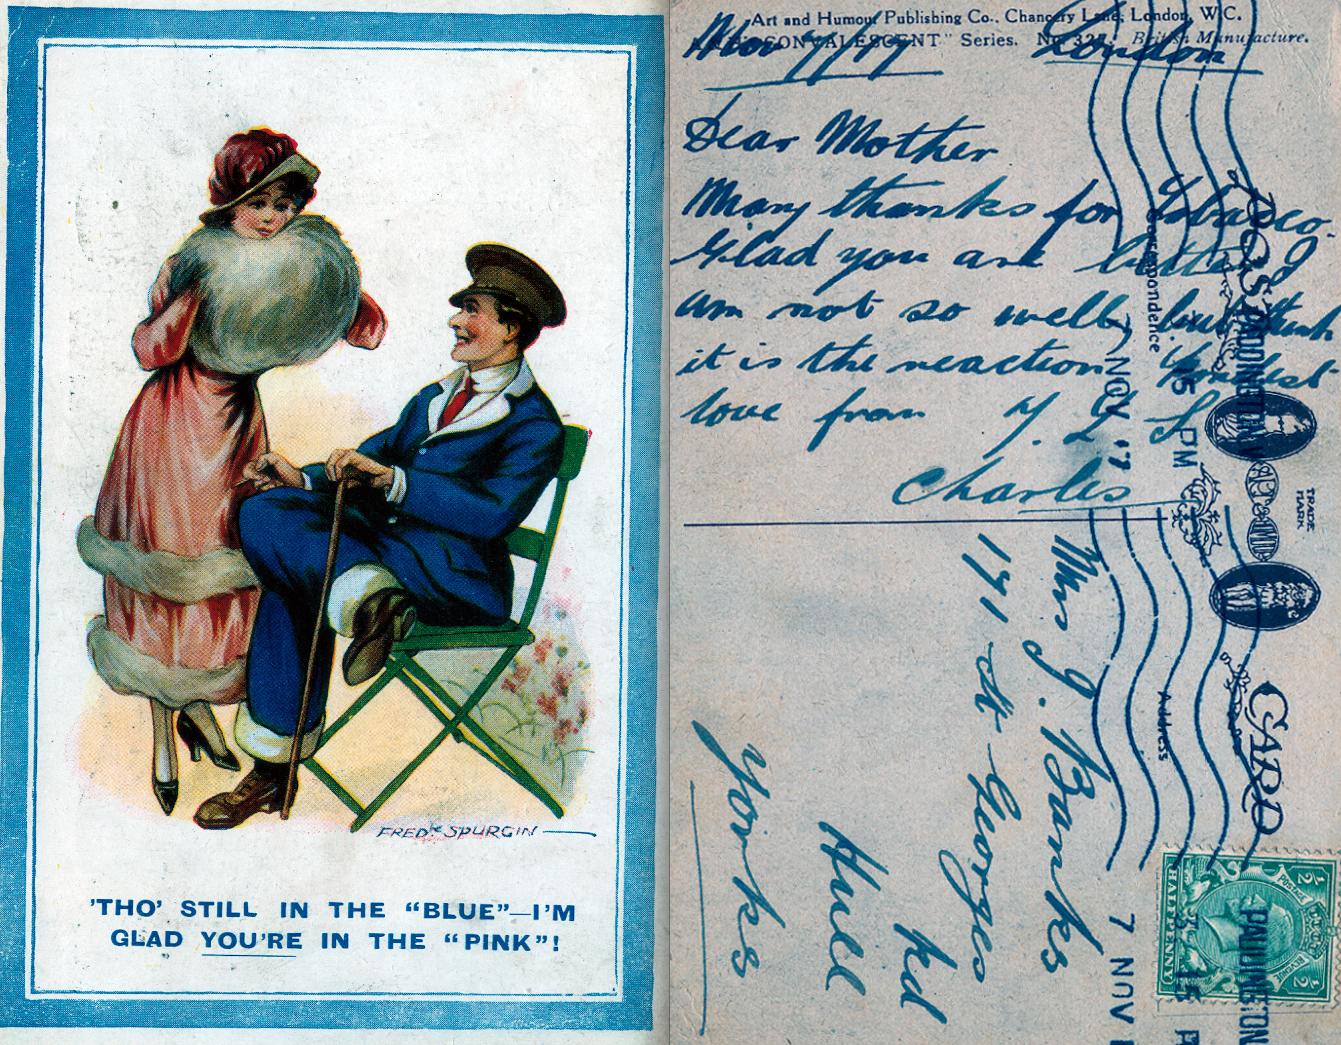 FREDK SPURGIN
'THO' STILL IN THE "BLUE"—I'M
GLAD YOU'RE IN THE "PINK"!
Art and Humour Publishing Co., Chancery Lane, London, W.C.
"CONVALESCENT" Series. No. 327. British Manufacture.
Nov 7/17 London
Dear Mother
Many thanks for tobacco.
Glad you are better, I
am not so well, but think
it is the reaction. Kindest
love from Y. L. S.
Charles
POST CARD
Correspondence
Address
TRADE MARK
Mrs J. Banks
171 St Georges
Rd
Hull
Yorks
PADDINGTON
3.15 PM
7 NOV 17
POSTAGE
REVENUE
HALFPENNY
½ ½
PADDINGTON
3.15 P
7 NOV 1